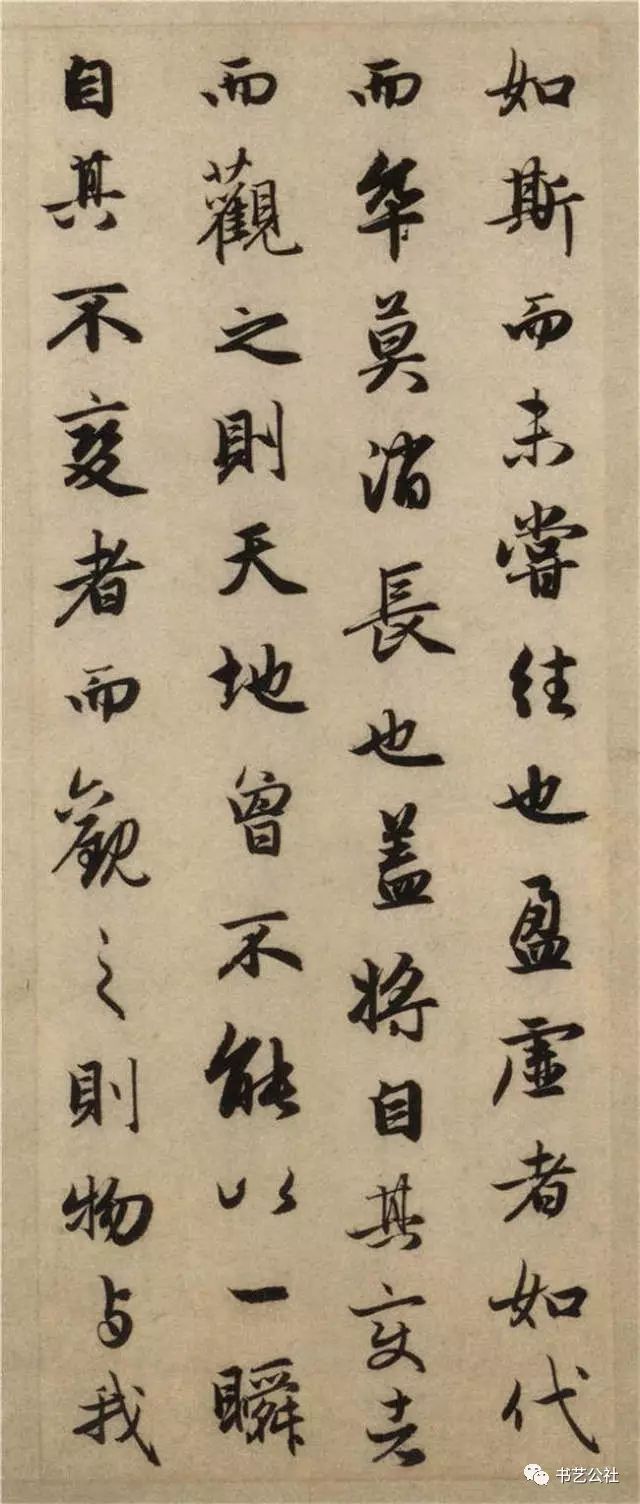 如斯而未嘗往也盈虛者如代
而卒莫消長也盖將自其変者
而觀之則天地曾不能以一瞬
自其不變者而觀之則物与我
书艺公社